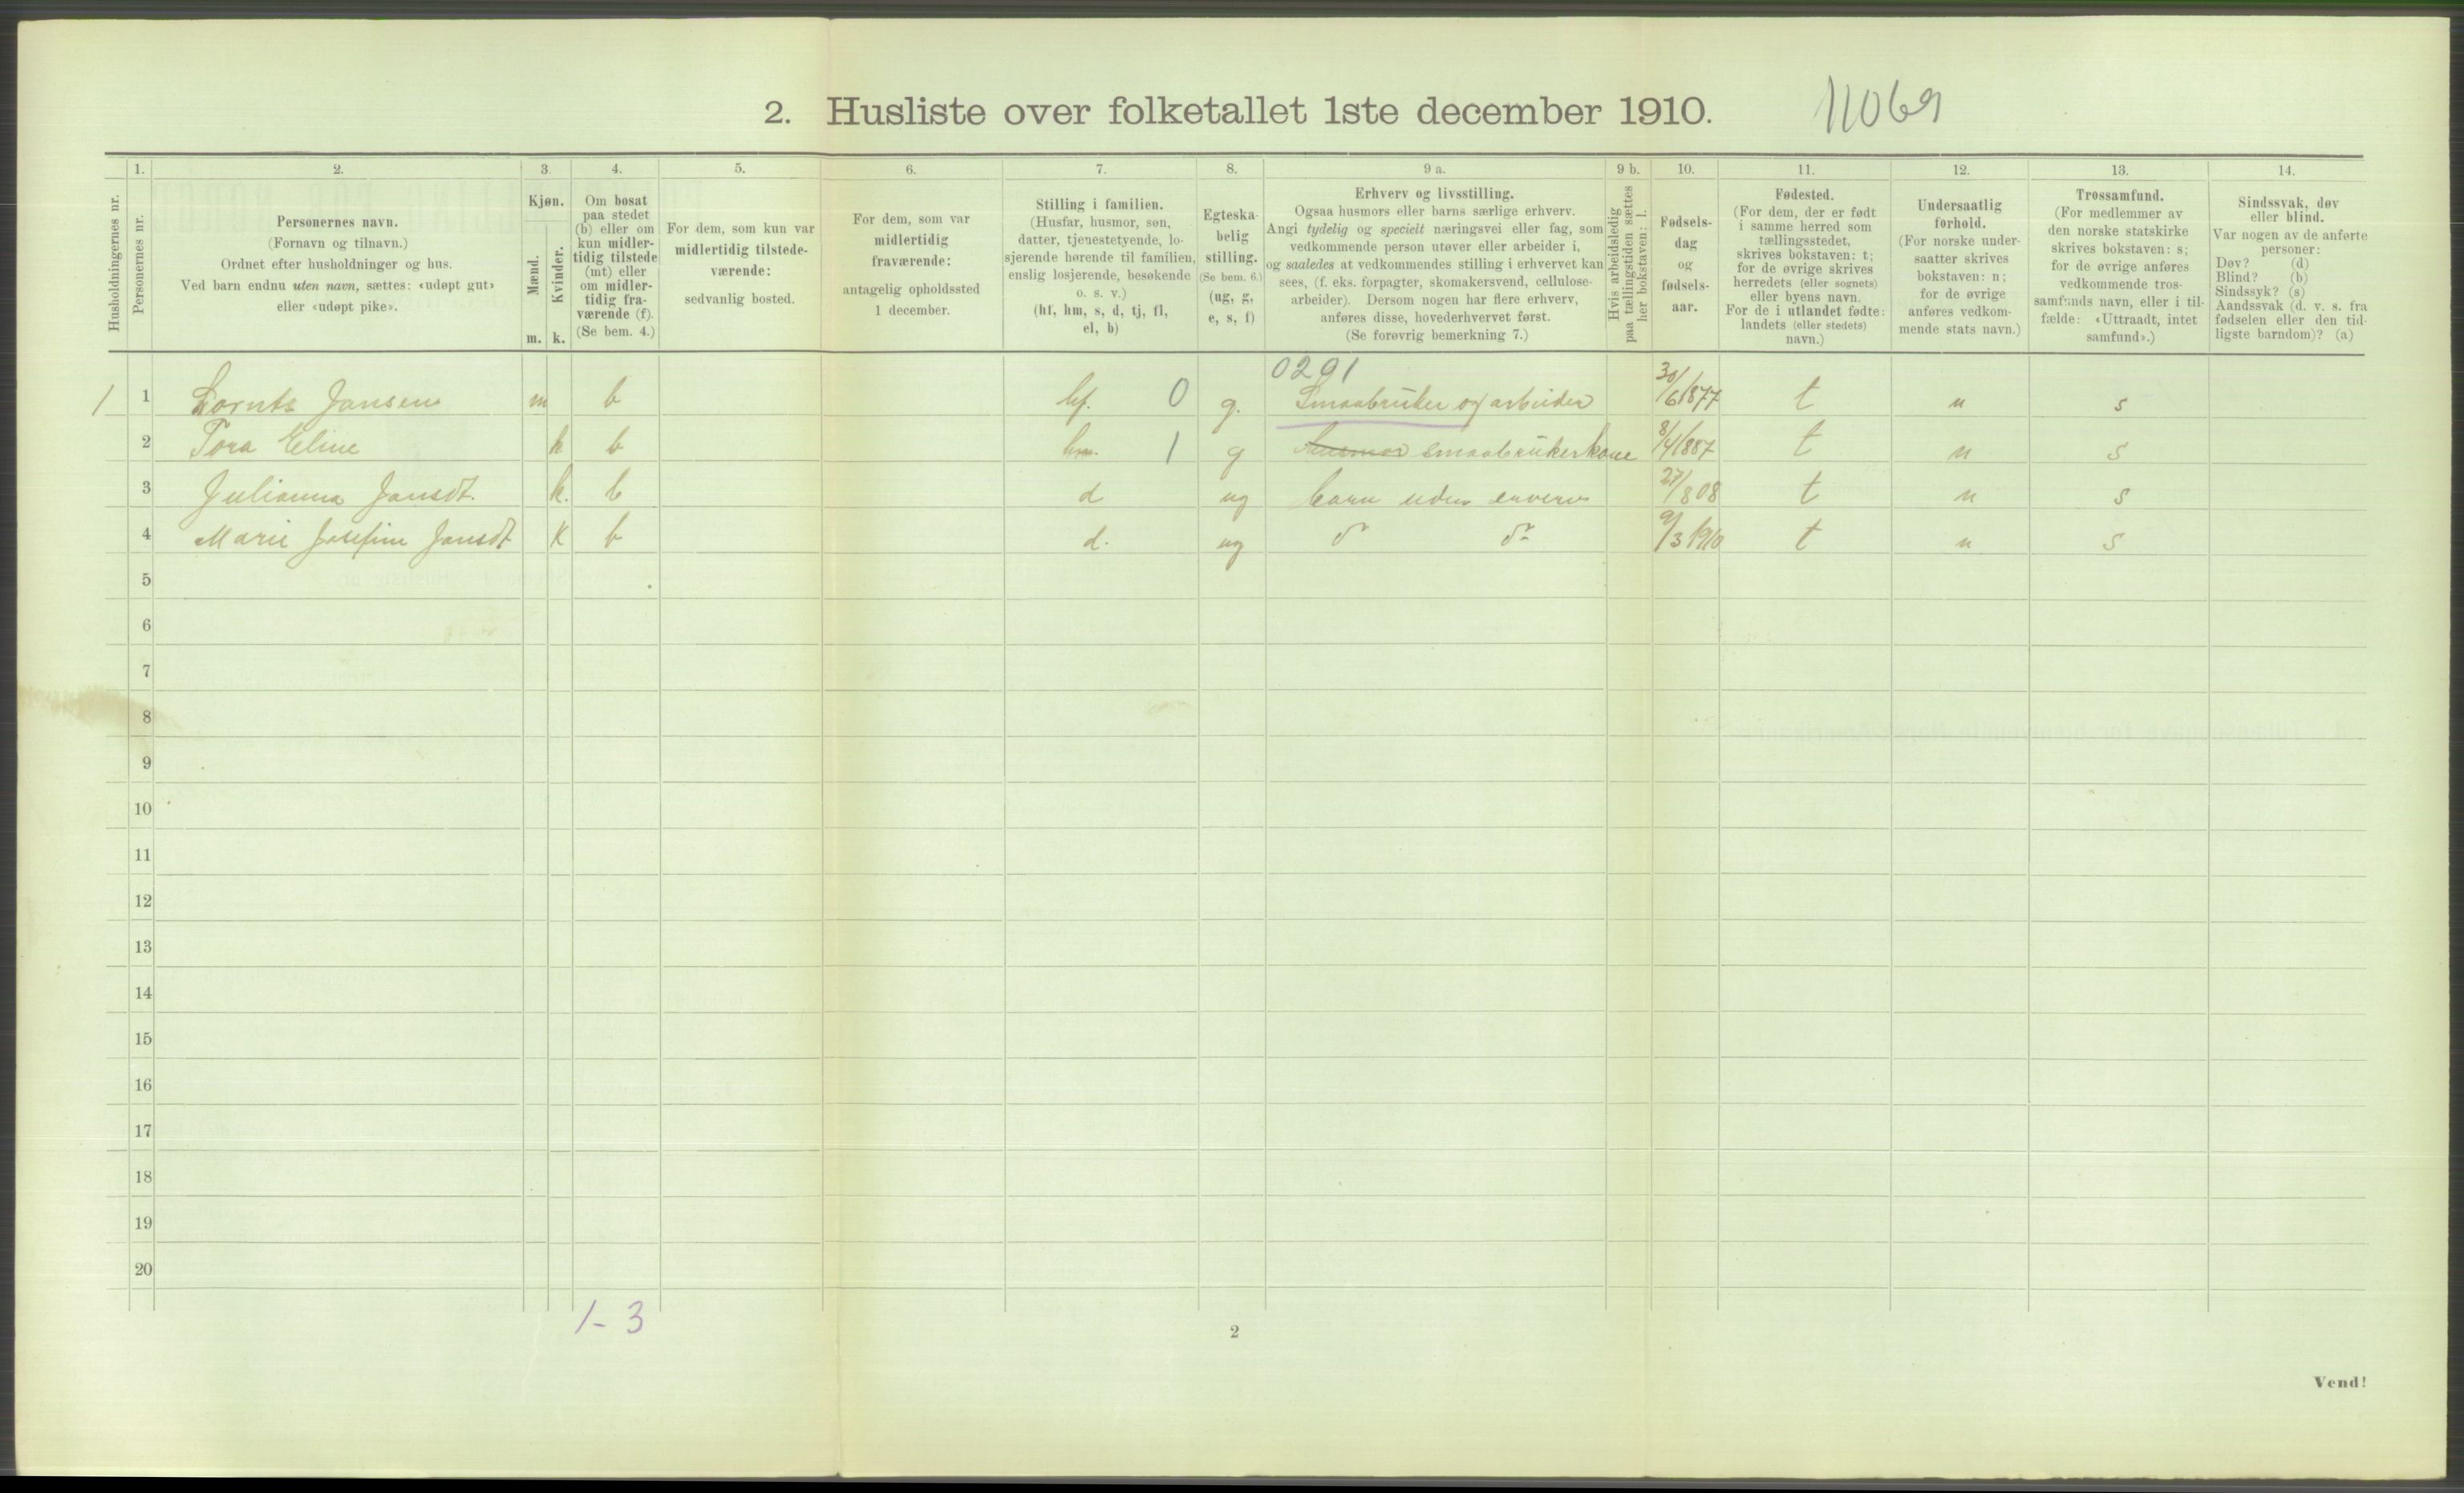 2. Husliste over folketallet 1ste december 1910.
11069
Husholdningernes nr.
1.
Personernes nr.
2.
Personernes navn.
(Fornavn og tilnavn.)
Ordnet efter husholdninger og hus.
Ved barn endnu uten navn, sættes: «udøpt gut»
eller «udøpt pike».
3.
Kjøn.
Mænd.
Kvinder.
m. k.
4.
Om bosat
paa stedet
(b) eller om
kun midler-
tidig tilstede
(mt) eller
om midler-
tidig fra-
værende (f).
(Se bem. 4.)
5.
For dem, som kun var
midlertidig tilstede-
værende:
sedvanlig bosted.
6.
For dem, som var
midlertidig
fraværende:
antagelig opholdssted
1 december.
7.
Stilling i familien.
(Husfar, husmor, søn,
datter, tjenestetyende, lo-
sjerende hørende til familien,
enslig losjerende, besøkende
o. s. v.)
(hf, hm, s, d, tj, fl,
el, b)
8.
Egteska-
belig
stilling.
(Se bem. 6.)
(ug, g,
e, s, f)
9 a.
Erhverv og livsstilling.
Ogsaa husmors eller barns særlige erhverv.
Angi tydelig og specielt næringsvei eller fag, som
vedkommende person utøver eller arbeider i,
og saaledes at vedkommendes stilling i erhvervet kan
sees, (f. eks. forpagter, skomakersvend, cellulose-
arbeider). Dersom nogen har flere erhverv,
anføres disse, hovederhvervet først.
(Se forøvrig bemerkning 7.)
9 b.
Hvis arbeidsledig
paa tællingstiden sættes
her bokstaven: l.
10.
Fødsels-
dag
og
fødsels-
aar.
11.
Fødested.
(For dem, der er født
i samme herred som
tællingsstedet,
skrives bokstaven: t;
for de øvrige skrives
herredets (eller sognets)
eller byens navn.
For de i utlandet fødte:
landets (eller stedets)
navn.)
12.
Undersaatlig
forhold.
(For norske under-
saatter skrives
bokstaven: n;
for de øvrige
anføres vedkom-
mende stats navn.)
13.
Trossamfund.
(For medlemmer av
den norske statskirke
skrives bokstaven: s;
for de øvrige anføres
vedkommende tros-
samfunds navn, eller i til-
fælde: «Uttraadt, intet
samfund».)
14.
Sindssvak, døv
eller blind.
Var nogen av de anførte
personer:
Døv? (d)
Blind? (b)
Sindssyk? (s)
Aandssvak (d. v. s. fra
fødselen eller den tid-
ligste barndom)? (a)
0291
1 1 Lornts Jansen m b hf. 0 g. Smaabruker og arbeider 30/6 1877 t n s
2 Tora Eline k b hm. 1 g husmor smaabrukerkone 8/4 1887 t n s
3 Julianna Jansdt. k. b d ug barn uden erverv 27/8 08 t n s
4 Marie Josefine Jansdt k b d. ug do do 9/3 1910 t n s
5
6
7
8
9
10
11
12
13
14
15
16
17
18
19
20
1 - 3
2
Vend!